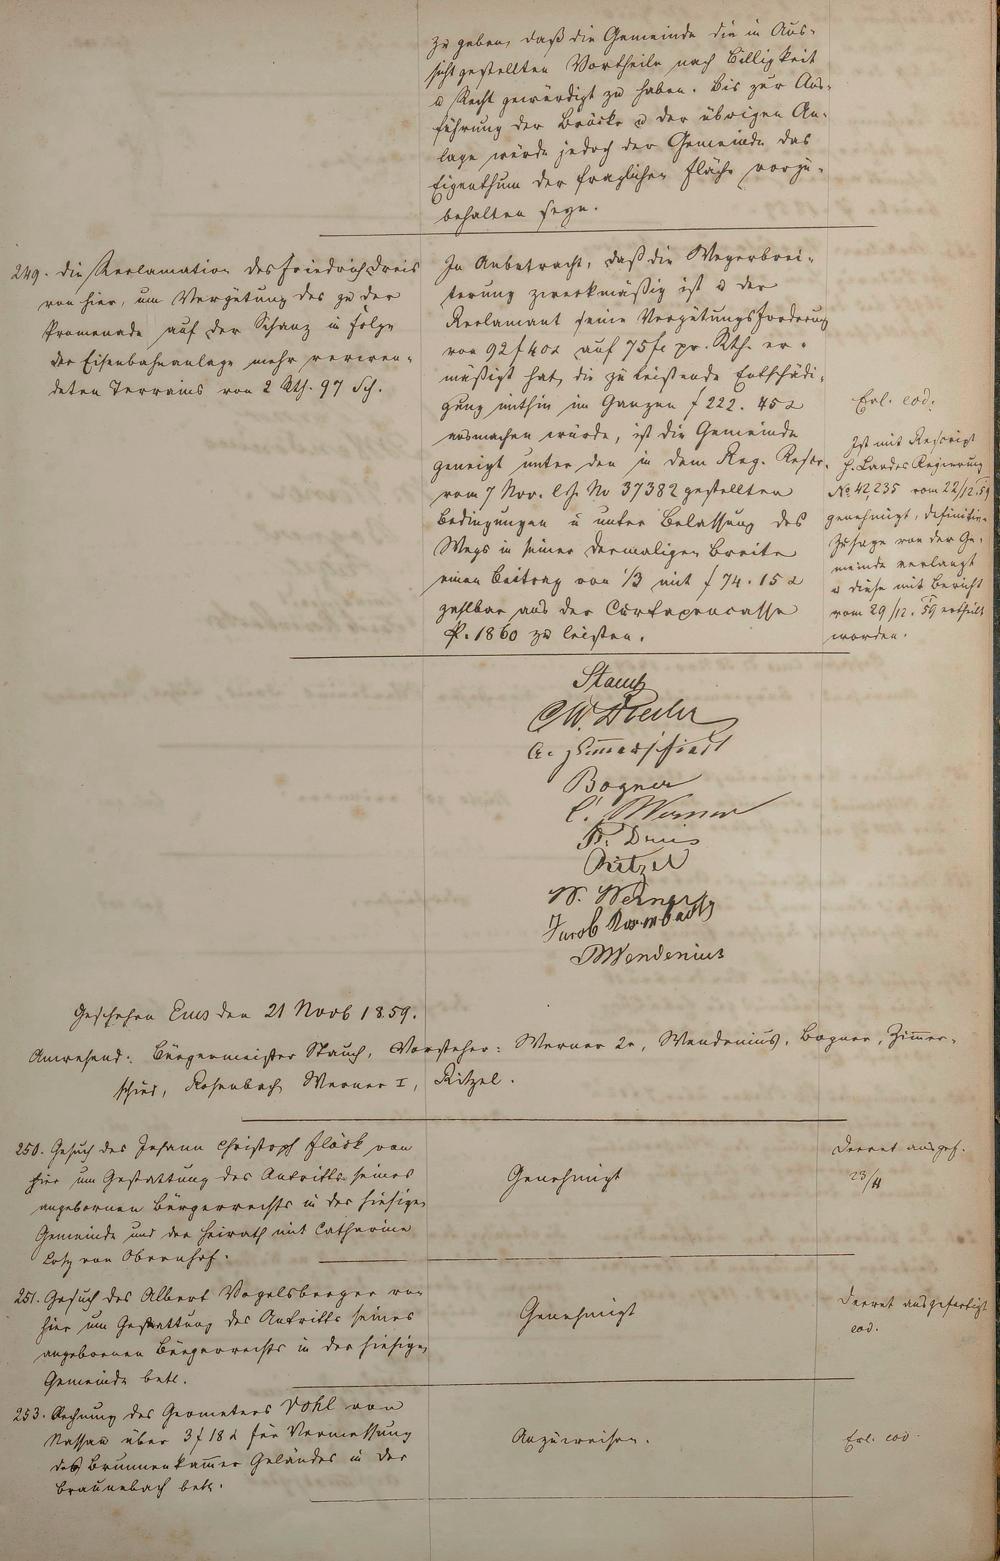 zu geben, daß die Gemeinde die in Aus-
sicht gestellten Vortheile nach Billigkeit
u Recht gewürdigt zu haben. Bis zur Aus-
führung der Brücke u der übrigen An-
lage würde jedoch der Gemeinde das
Eigenthum der fraglichen Fläche vorzu-
behalten seyn.
249. Die Reclamation des Friedrich Dreis
von hier, um Vergütung des zu der
Promenade auf der Schanz in Folge
der Eisenbahnanlage mehr verwen-
deten Terrains von 2 Rth. 97 Sch.
In Anbetracht, daß die Wegerbrei-
terung zweckmäßig ist u der
Reclamant seine Vergütungsforderung
von 92 f 40 x auf 75 f pr. Rth. er-
mäßigt hat, die zu leistende Entschädi-
gung mithin im Ganzen f 222. 45 x
ausmachen würde, ist die Gemeinde
geneigt unter den in dem Reg. Rescr.
vom 7 Nov. l. J. No 37382 gestellten
Bedingungen u unter Belassung des
Wegs in seiner dermaligen Breite
einen Beitrag von 1/3 mit f 74. 15 x
zahlbar aus der Curtaxencasse
p. 1860 zu leisten.
Erl. eod.
Ist mit Rescript
H. Landes Regierung
No 42,235 vom 22/12. 59
genehmigt, definitive
Zusage von der Ge-
meinde verlangt
u diese mit Bericht
vom 29/12. 59 ertheilt
worden.
Stauch
A. Zimmerschied
Bogner
C. Werner
Ritzel
W. Werner
Jacob Rosenbach
Wendenius
Geschehen Ems den 21 Novb 1859.
Anwesend: Bürgermeister Stauch, Vorsteher: Werner 2r, Wendenius, Bogner, Zimmer-
schied, Rosenbach Werner I, Ritzel.
250. Gesuch des Johann Christoph Flöck von
hier um Gestattung des Antritts seines
angebornen Bürgerrechts in der hiesigen
Gemeinde und der Heirath mit Catharine
Lotz von Obernhof.
Genehmigt
Decret ausgef.
23/11
251. Gesuch des Albert Vogelsberger von
hier um Gestattung des Antritts seines
angebornen Bürgerrechts in der hiesigen
Gemeinde betr.
Genehmigt
Decret ausgefertigt
eod.
253. Rechnung des Geometers Vohl von
Nassau über 3 f 18 x für Vermessung
des Brunnenkammer Geländes in der
Braunebach betr.
Anzuweisen.
Erl. eod.